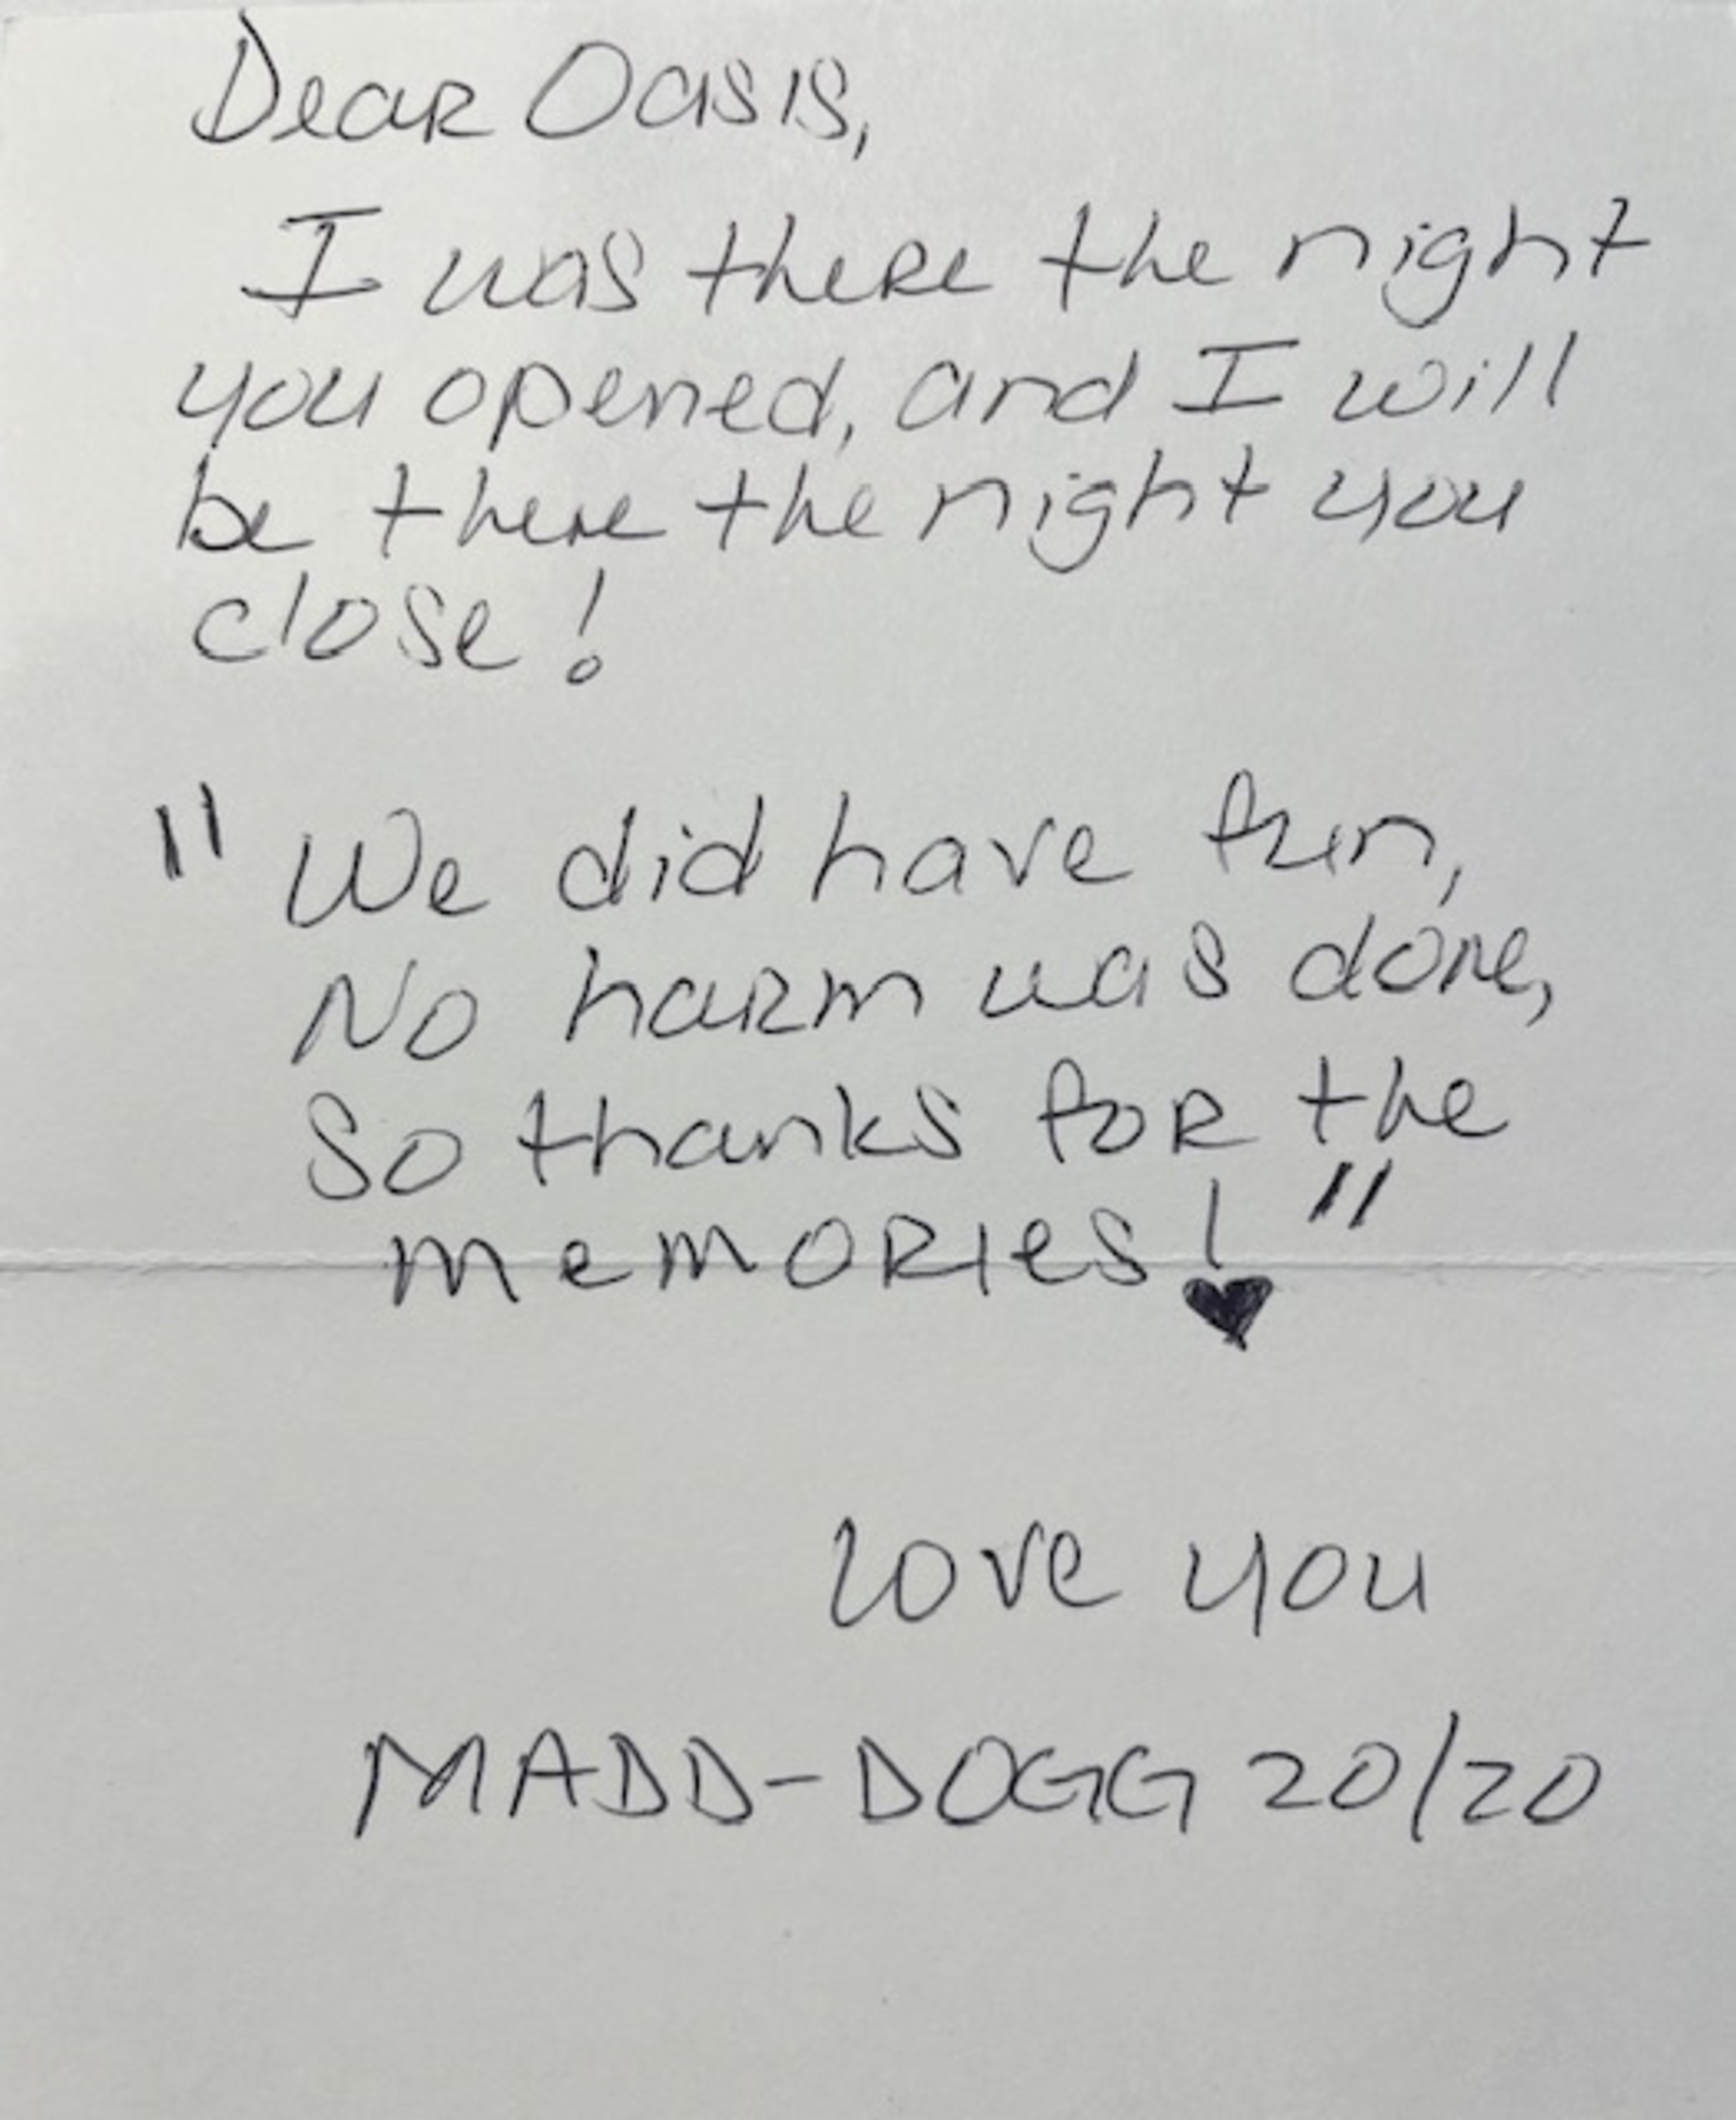 Dear Oasis,
I was there the night
you opened, and I will
be there the night you
close!
"We did have fun,
No harm was done,
So thanks for the
memories!"
love you
MADD-DOGG 20/20